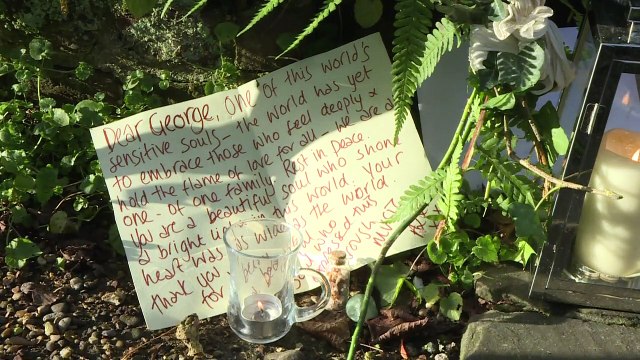 Dear George, one of this world's
sensitive souls - the world has yet
to embrace those who feel deeply &
hold the flame of love for all - we are all
one - of one family. Rest in Peace
you are a beautiful soul who shone
a bright light in the world. your
heart was as wide as the world.
Thank you who this
for